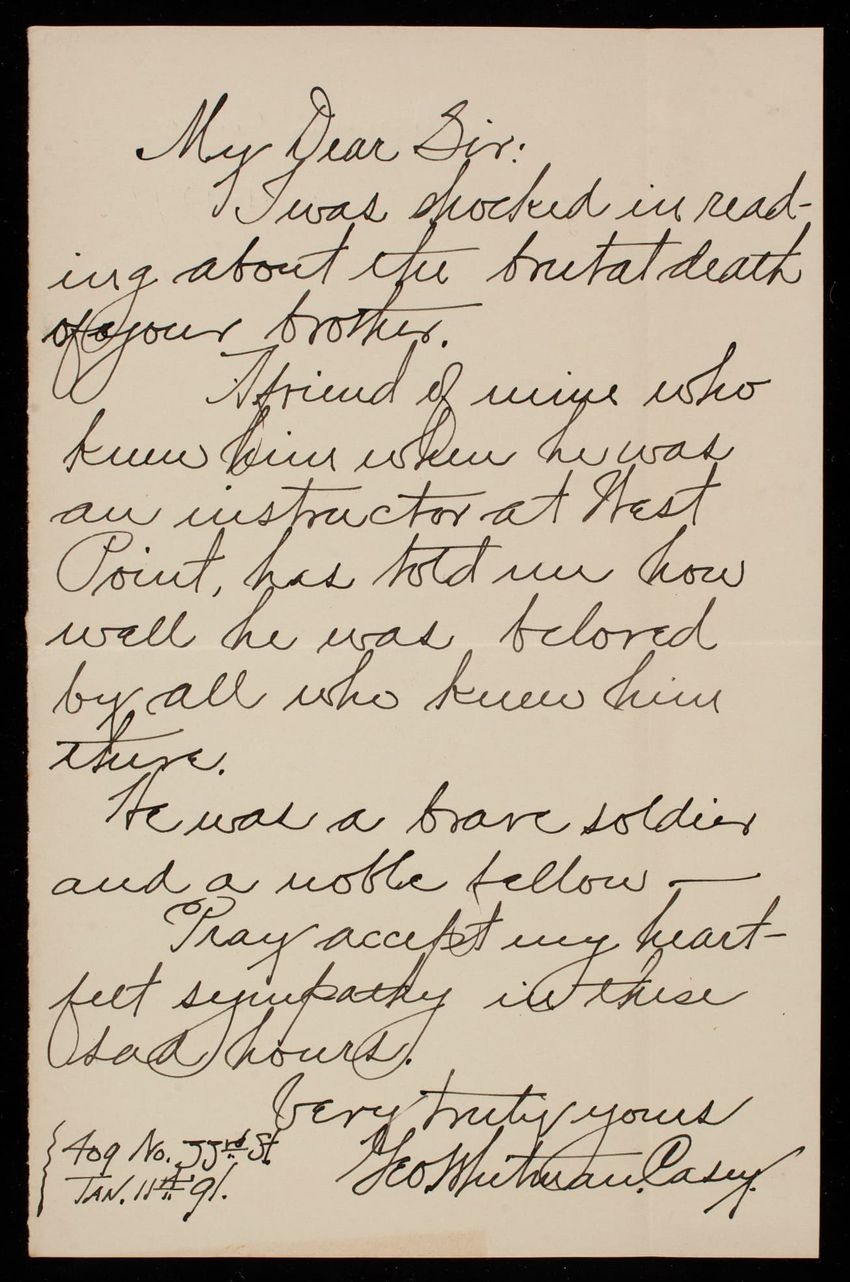 My Dear Sir:
I was shocked in read-
ing about the brutal death
of your brother.
A friend of mine who
knew him when he was
an instructor at West
Point, has told me how
well he was beloved
by all who knew him
there.
He was a brave soldier
and a noble fellow —
Pray accept my heart-
felt sympathy in these
sad hours.
Very truly yours
Geo Whitman. Casey.
409 No. 33rd St.
JAN. 11th 91.